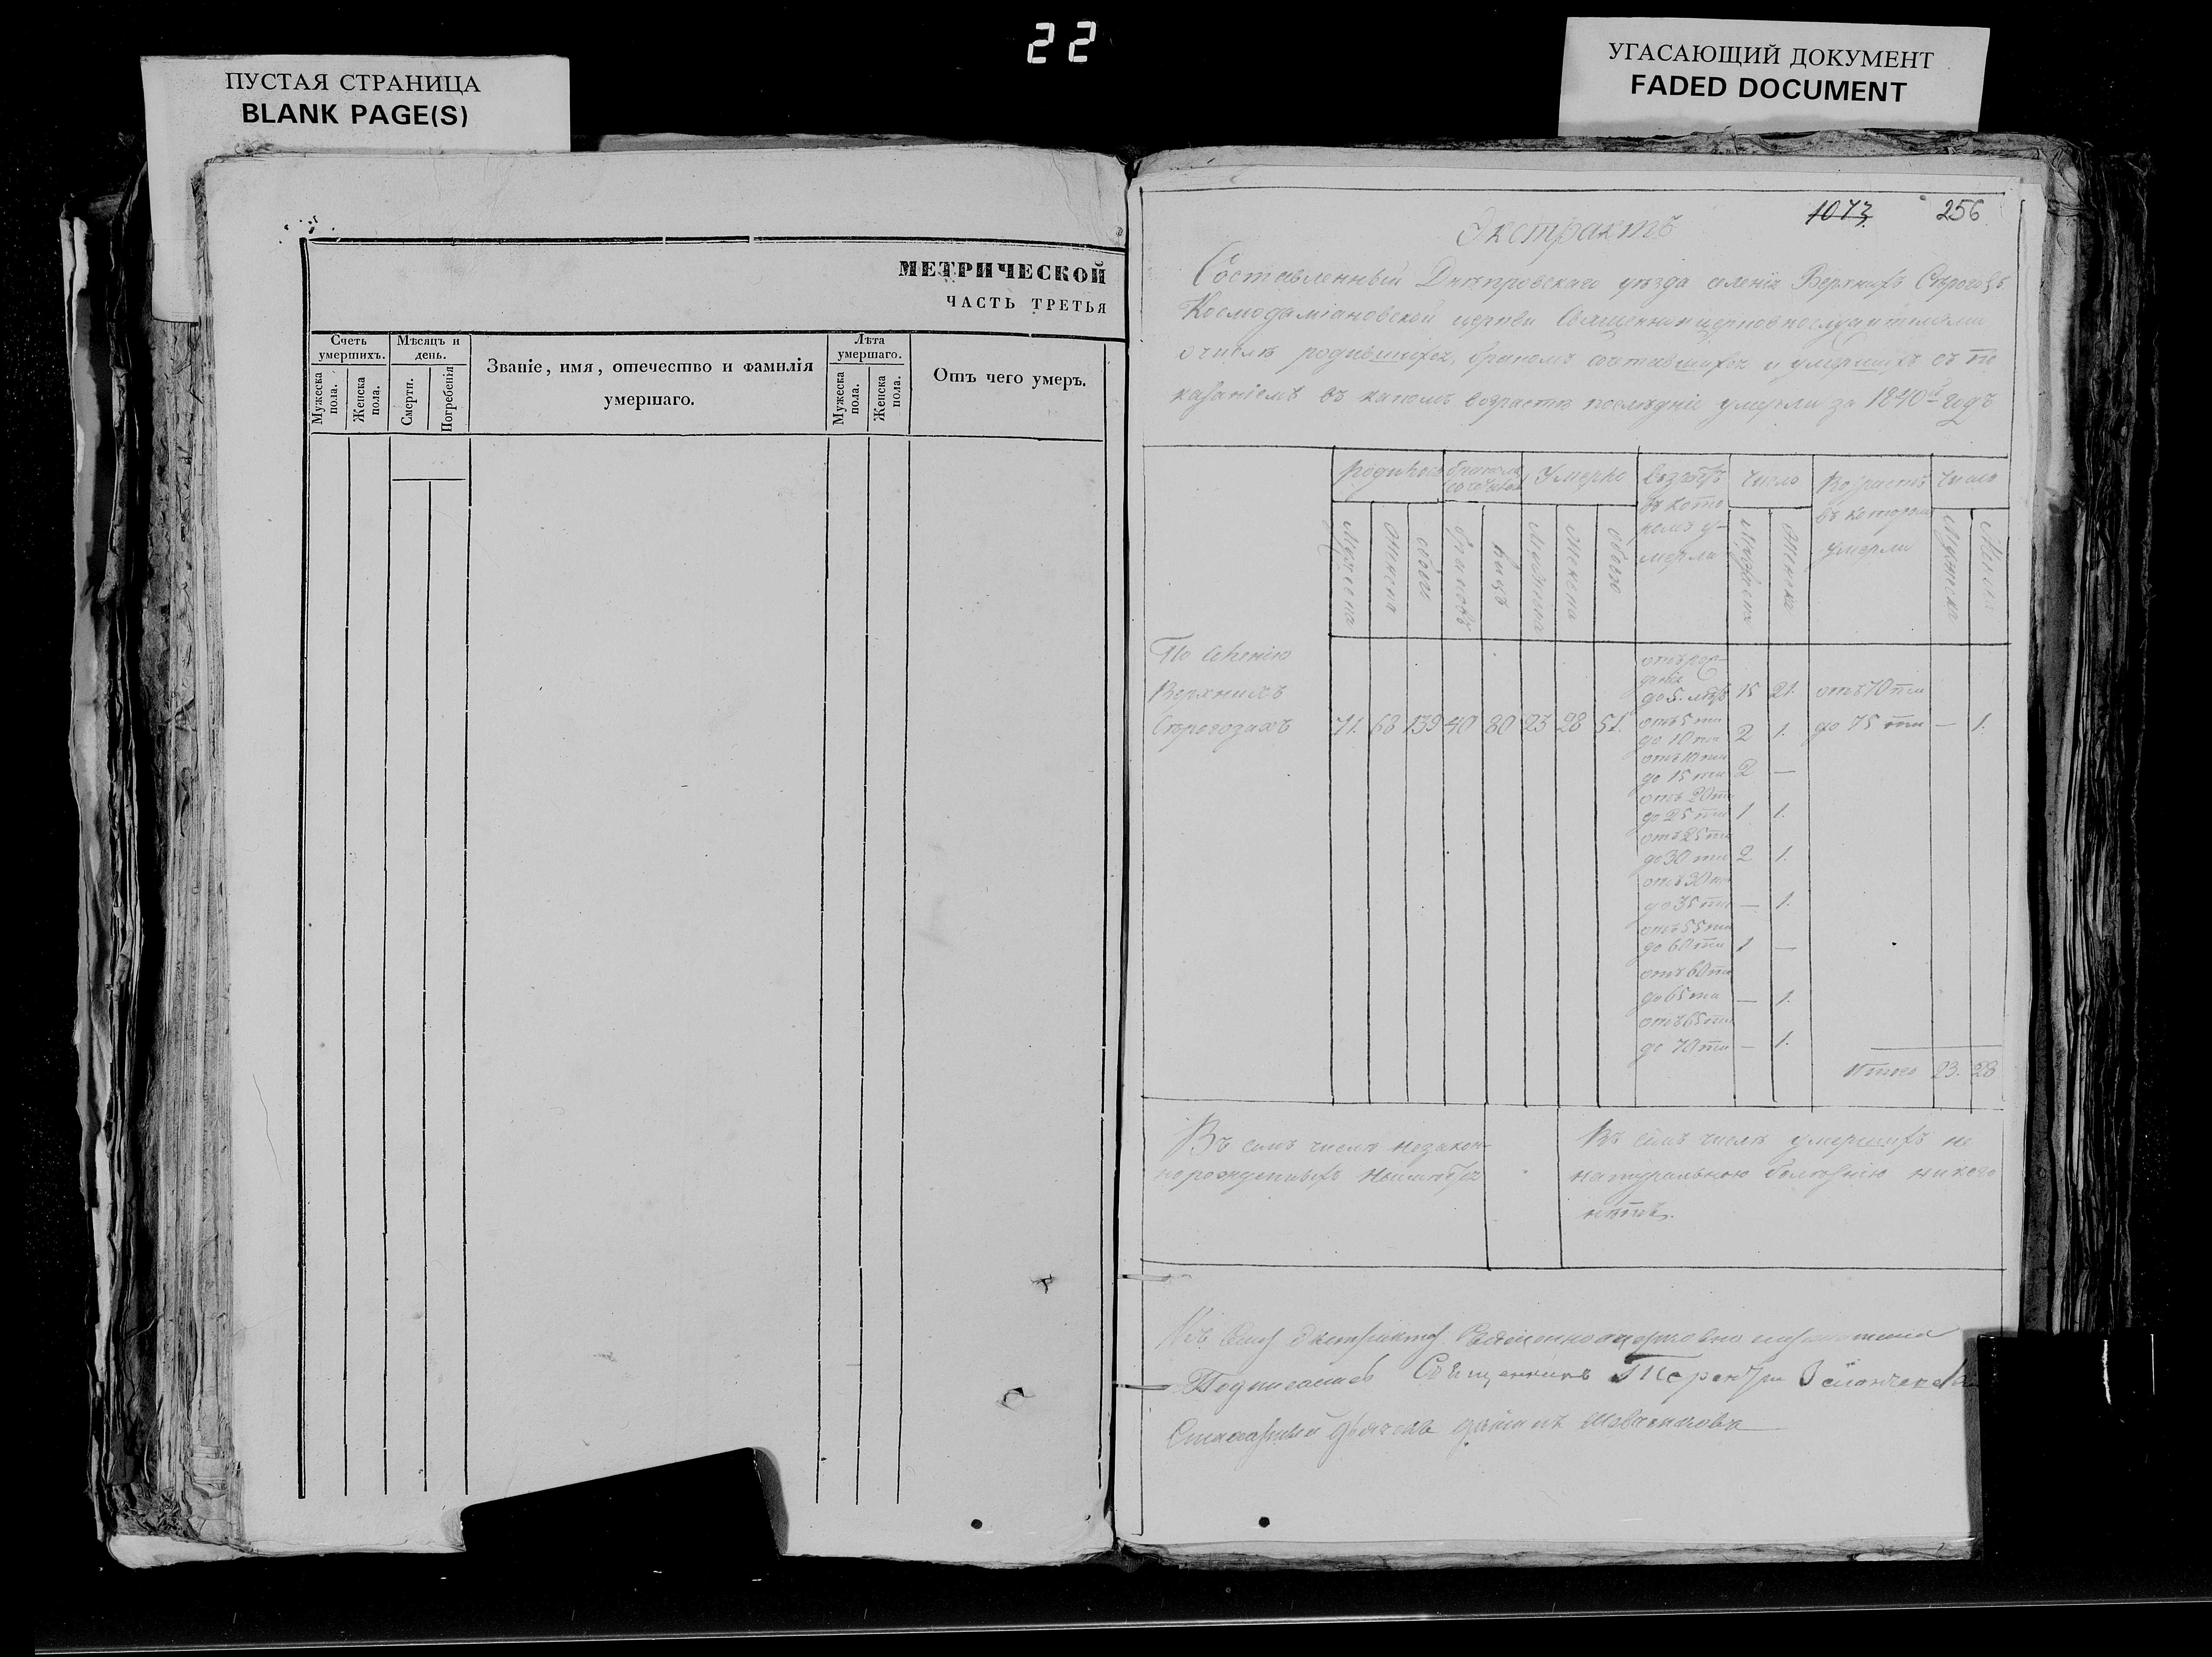 22
ПУСТАЯ СТРАНИЦА
BLANK PAGE(S)
УГАСАЮЩИЙ ДОКУМЕНТ
FADED DOCUMENT
МЕТРИЧЕСКОЙ
ЧАСТЬ ТРЕТЬЯ
Счетъ умершихъ.
Мужеска пола.
Женска пола.
Мѣсяцъ и день.
Смерти.
Погребенія
Званіе, имя, отечество и фамилія
умершаго.
Лѣта умершаго.
Мужеска пола.
Женска пола.
Отъ чего умеръ.
1073 256
Экстрактъ
Составленный Днѣпровскаго уѣзда селенія Верхнихъ Сѣрогозъ
Космодаміановской церкви Священноцерковнослужителями
о числѣ родившихся, бракомъ сочетавшихся и умершихъ съ по
казаніемъ въ какомъ возрастѣ послѣдніе умерли за 1840й годъ
Родилось
Мужеска
Женска
обоего
бракомъ сочетались
браковъ
лицъ
Умерло
Мужеска
Женска
обоего
въ кото
ромъ у-
мерли
число
Мужеска
Женска
Возрастъ
въ которомъ
умерли
число
Мужеска
По селенію
Верхнихъ
Сѣрогозахъ 71. 68 139 40 80 23 28 51.
до 5. лѣтъ 15 21. отъ 70ти
отъ 5 ти
до 10ти 2 1. до 75 ти — 1.
отъ 10ти
до 15ти 2 —
отъ 20ти
до 25ти 1 1.
отъ 25ти
до 30ти 2 1.
отъ 30ти
до 35ти — 1.
отъ 55ти
до 60ти 1 —
отъ 60ти
до 65ти — 1.
отъ 65ти
до 70ти — 1.
Итого 23. 28
Въ семъ числѣ незакон-
норожденныхъ
Въ семъ числѣ умершихъ не
натуральною болѣзнію никого
нѣтъ.
Къ сему экстракту
Священникъ